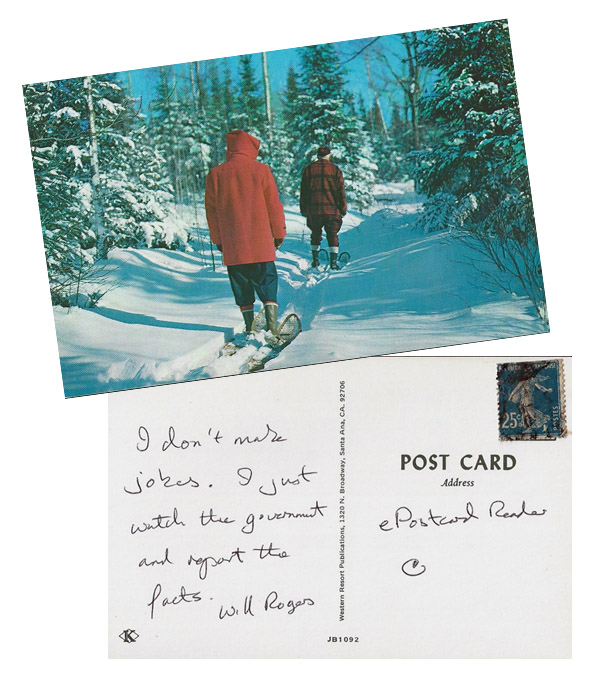 I don't make
jokes. I just
watch the government
and report the
facts.
Will Rogers
K
Western Resort Publications, 1320 N. Broadway, Santa Ana, CA. 92706
25c
POSTES
POST CARD
Address
ePostcard Reader
JB1092